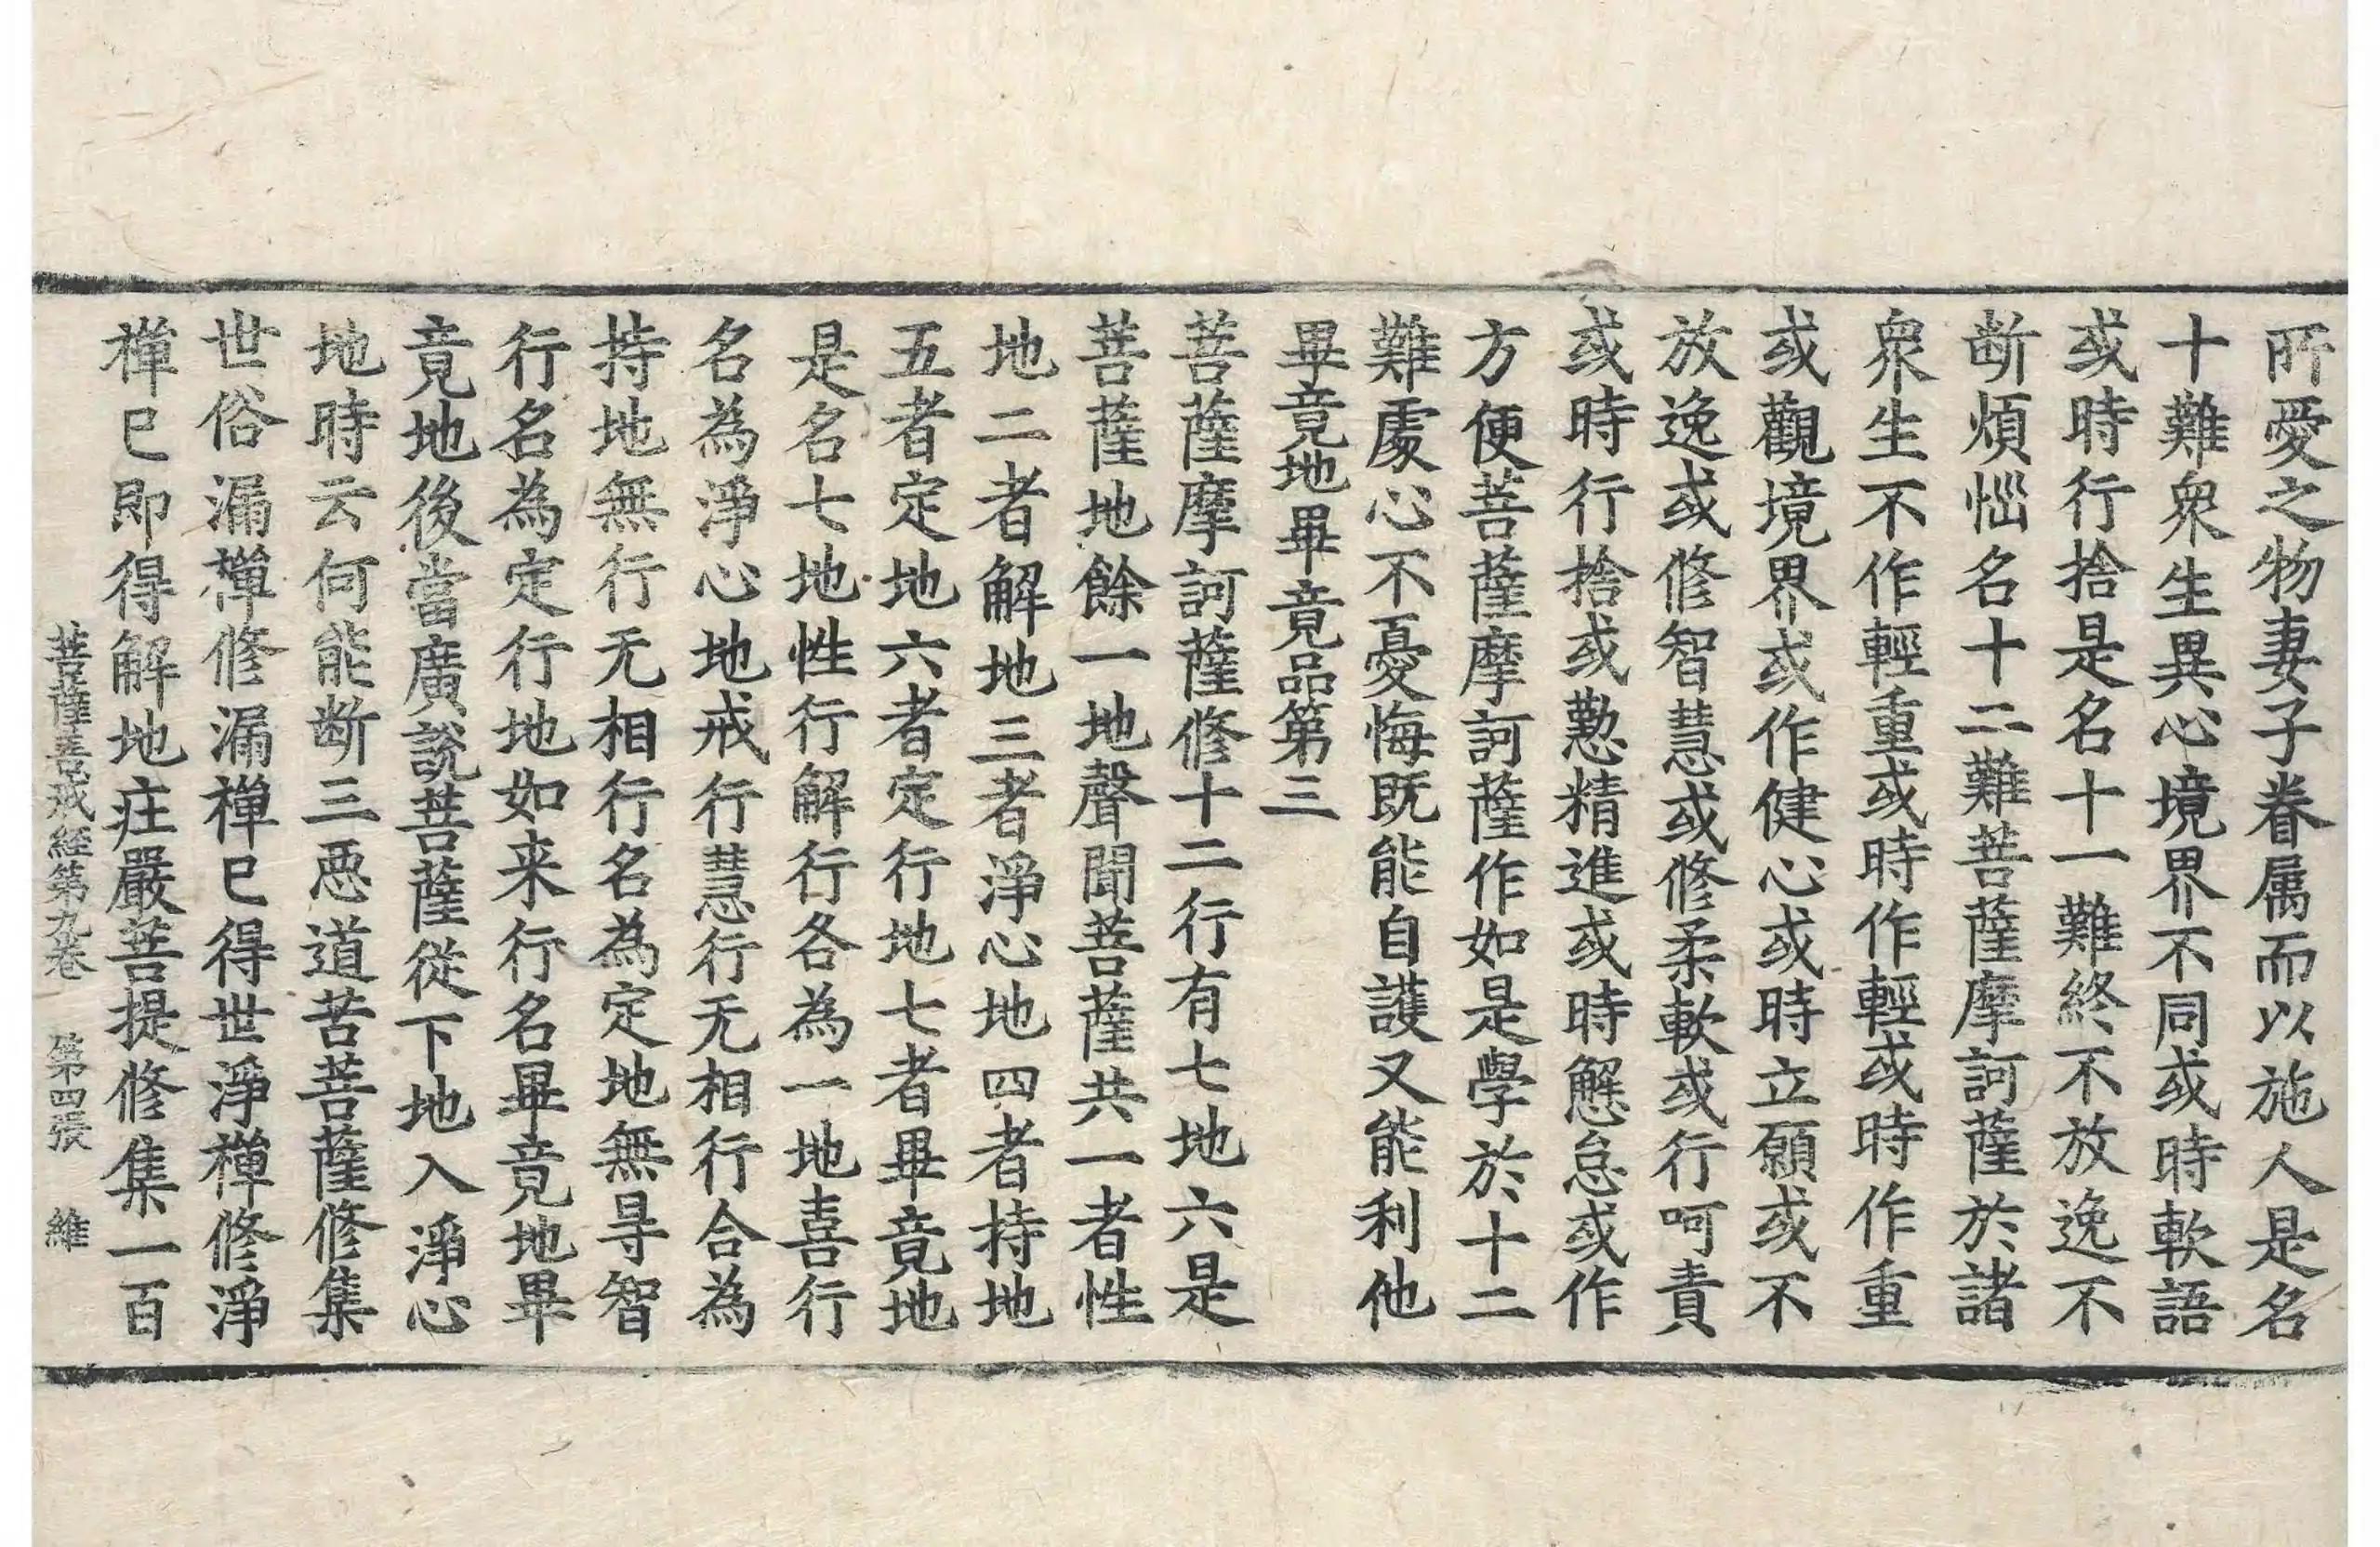 所愛之物妻子眷属而以施人是名
十難衆生異心境界不同或時軟語
或時行捨是名十一難終不放逸不
断煩惱名十二難菩薩摩訶薩於諸
衆生不作輕重或時作輕或時作重
或觀境界或作健心或時立願或不
放逸或修智慧或修柔軟或行呵責
或時行捨或懃精進或時懈怠或作
方便菩薩摩訶薩作如是學於十二
難處心不憂悔既能自護又能利他
畢竟地畢竟品第三
菩薩摩訶薩修十二行有七地六是
菩薩地餘一地聲聞菩薩共一者性
地二者解地三者淨心地四者持地
五者定地六者定行地七者畢竟地
是名七地性行解行各為一地喜行
名為淨心地戒行慧行无相行合為
持地無行无相行名為定地無㝵智
行名為定行地如来行名畢竟地畢
竟地後當廣說菩薩從下地入淨心
地時云何能断三惡道苦菩薩修集
世俗漏禪修漏禪已得世淨禪修淨
禪已即得解地庄嚴菩提修集一百
菩薩善戒経第九卷 第四張 維